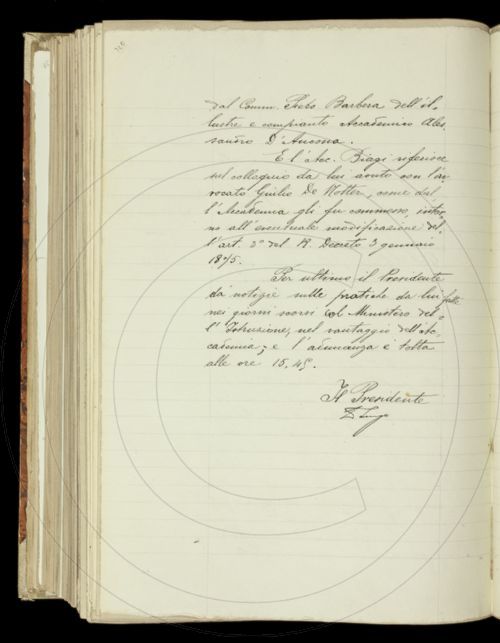 dal Comm. Piero Barbera dell'il-
lustre e compianto Accademico Ales-
sandro D'Ancona.
E l'Acc. Biagi riferisce
sul colloquio da lui avuto con l'av-
vocato Giulio De Notter, come dal-
l'Accademia gli fu commesso, intor-
no all'eventuale modificazione del-
l'art. 2° del R. Decreto 3 gennaio
1875.
Per ultimo il Presidente
dà notizie sulle pratiche da lui fatte
nei giorni scorsi col Ministero del-
l'Istruzione, nel vantaggio dell'Ac-
cademia; e l'adunanza è tolta
alle ore 15,45.
Il Presidente